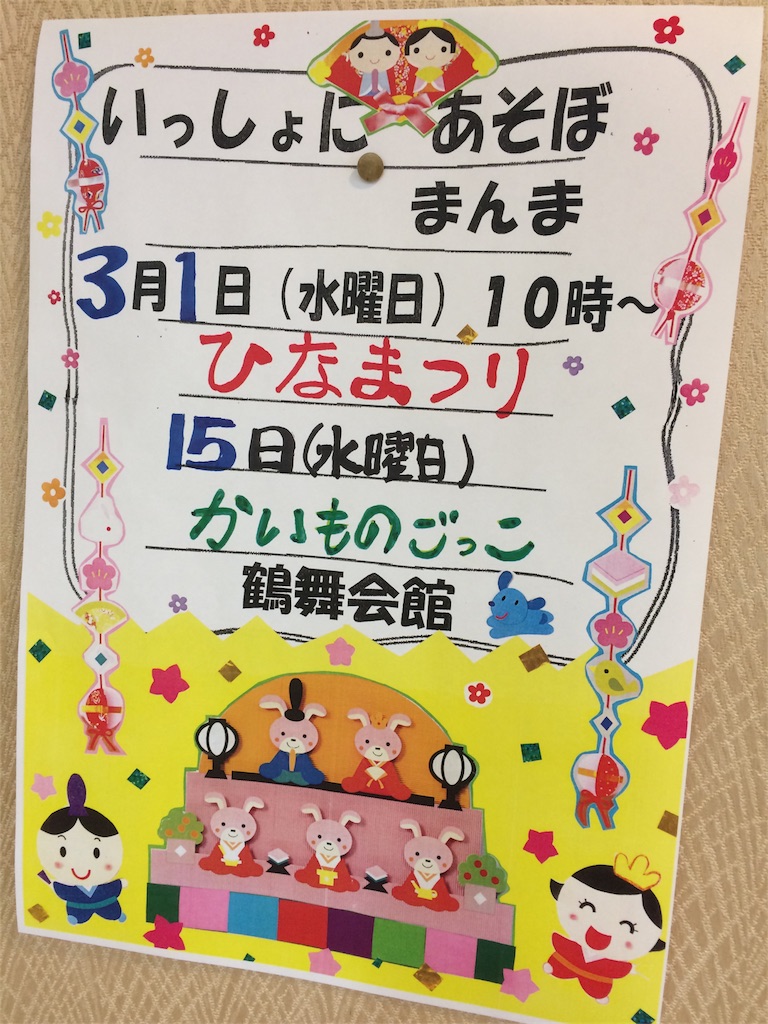 いっしょに あそぼ
まんま
3月1日（水曜日）10時～
ひなまつり
15日(水曜日)
かいものごっこ
鶴舞会館